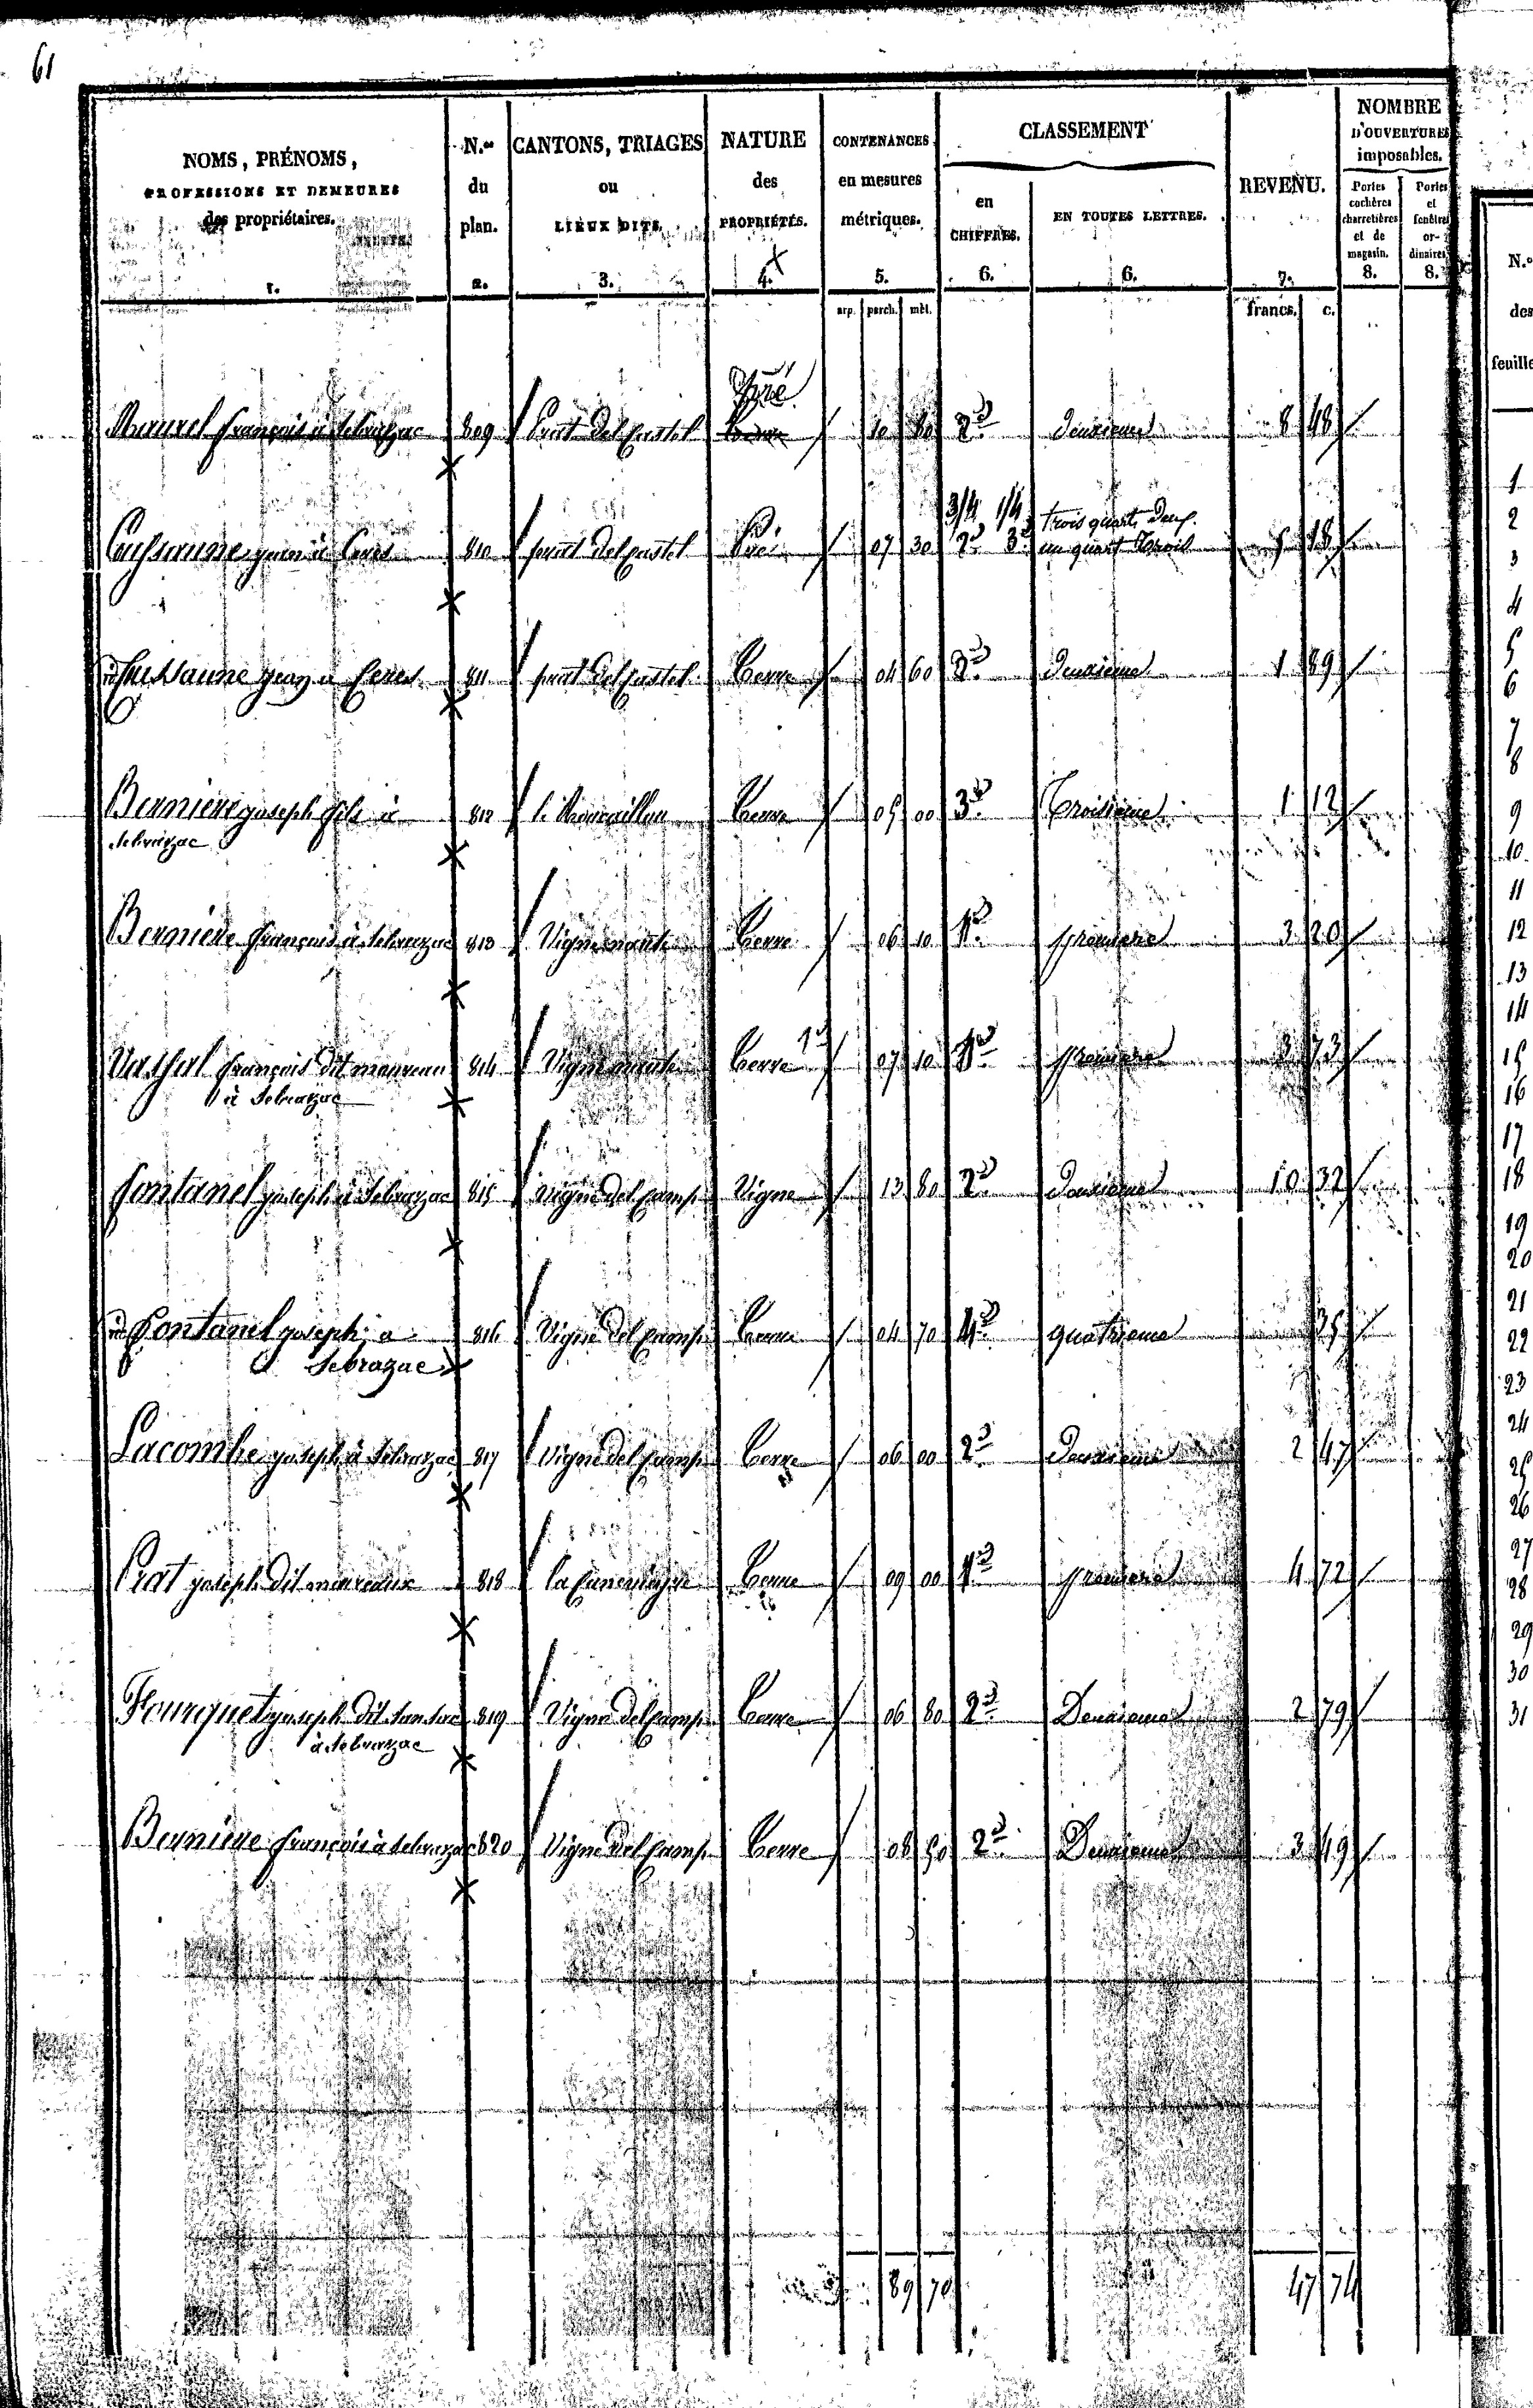 61
NOMS, PRÉNOMS, PROFESSIONS ET DEMEURES des propriétaires. 1.
N.os du plan. 2.
CANTONS, TRIAGES ou LIEUX DITS. 3.
NATURE des PROPRIÉTÉS. 4.
CONTENANCES en mesures métriques. 5.
CLASSEMENT
en CHIFFRES. 6.
EN TOUTES LETTRES. 6.
REVENU. 7.
NOMBRE D'OUVERTURES imposables.
Portes cochères charretières et de magasin. 8.
Portes et fenêtres ordinaires 8.
arp. perch. mèt. francs. c.
Pré
Maurel françois à Sebrazac 809 Prat del Castel 10 80 2e Deuxieme 8 48
3/4 1/4 trois quarts Deux.
810 prat del Castel Pré 07 30 2e 3e un quart Trois 5 18
811 prat del Castel Terre 04 60 2e Deuxieme 1 89
Bernière joseph fils à 812 Terre 05 00 3e Troisieme 1 12
Sebrazac
Bernière françois à Sebrazac 813 Vigne Terre 06 10 1e premiere 3 20
françois dit 814 Vigne Terre 07 10 1e premiere 3 73
à Sebrazac
fontanel joseph à Sebrazac 815 Vigne del Camp Vigne 13 80 2e Deuxieme 10 32
Fontanel joseph à 816 Vigne del Camp Terre 04 70 4e quatrieme 35
Sebrazac
Lacombe joseph à Sebrazac 817 Vigne del Camp Terre 06 00 2e Deuxieme 2 47
Prat joseph dit 818 Terre 09 00 1e premiere 4 72
Flourquet joseph dit 819 Vigne del Camp Terre 06 80 2e Deuxieme 2 79
à Sebrazac
Bernière françois à Sebrazac 820 Vigne del Camp Terre 08 50 2e Deuxieme 3 49
89 70 47 74
N.o
des
feuille
1
2
3
4
5
6
7
8
9
10
11
12
13
14
15
16
17
18
19
20
21
22
23
24
25
26
27
28
29
30
31